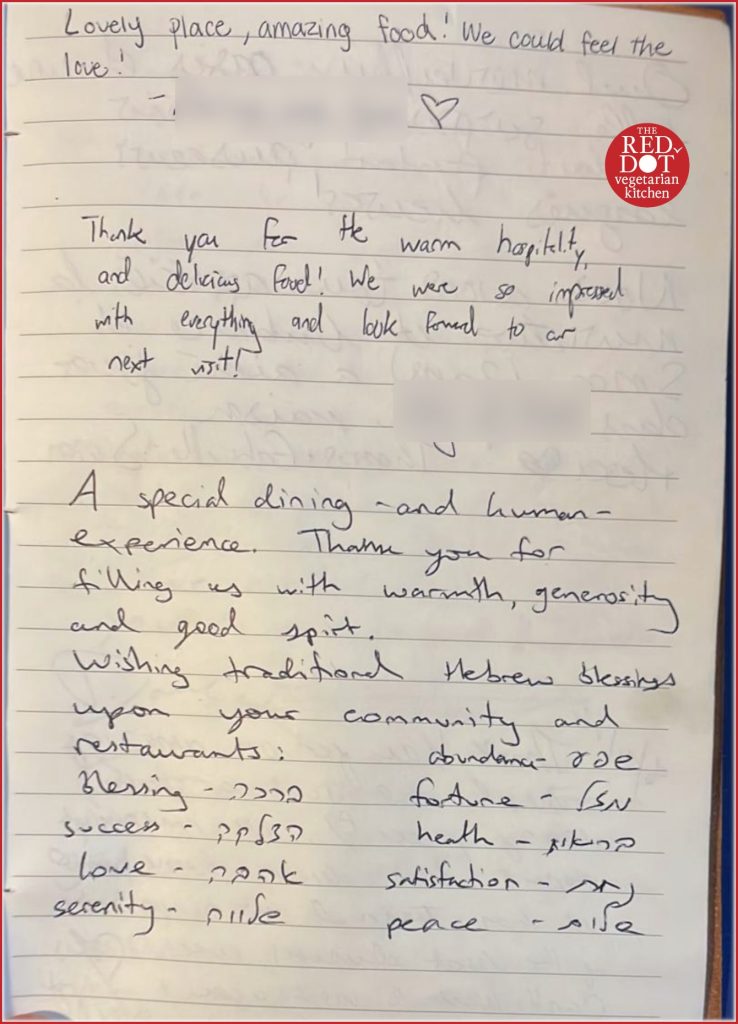 Lovely place, amazing food! We could feel the
love!
- ♡
THE
RED
DOT
vegetarian
kitchen
Thank you for the warm hospitality,
and delicious food! We were so impressed
with everything and look forward to our
next visit!
A special dining - and human -
experience. Thank you for
filling us with warmth, generosity
and good spirit.
Wishing traditional Hebrew blessings
upon your community and
restaurants: abundance - שפע
blessing - ברכה fortune - מזל
success - הצלחה heath - בריאות
love - אהבה satisfaction - נחת
serenity - שלווה peace - שלום